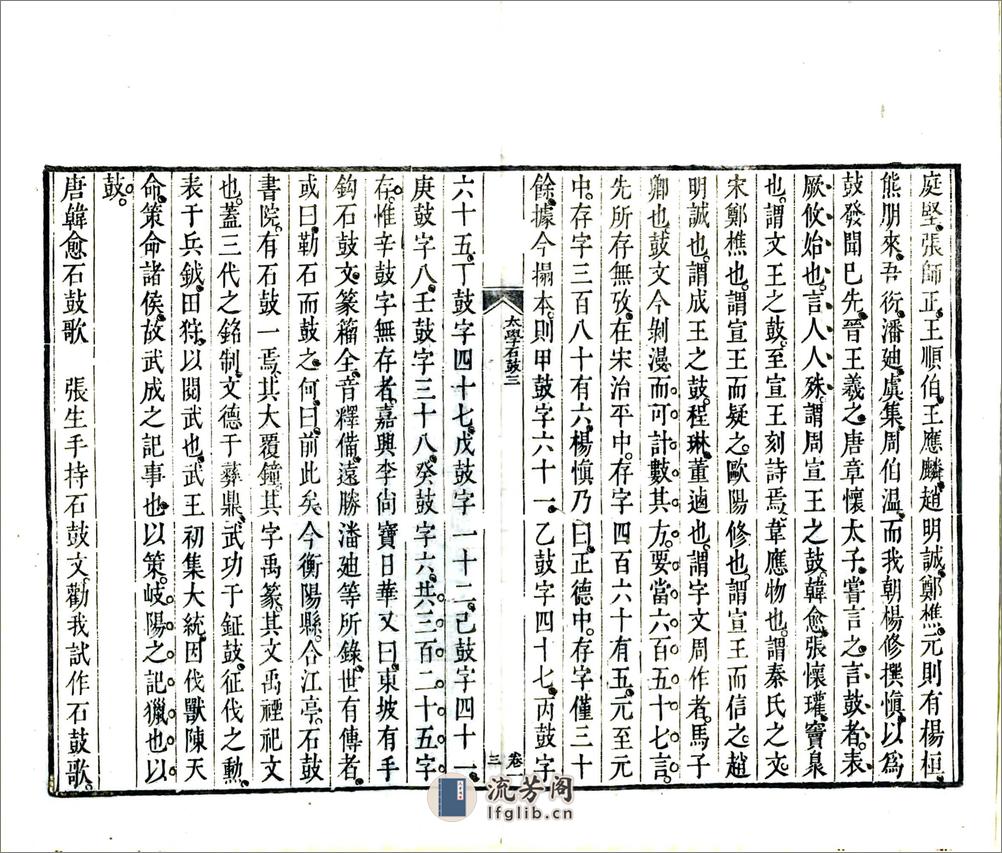 庭堅。張師正。王順伯。王應麟。趙明誠。鄭樵。元則有楊桓。
熊朋來。吾衍。潘廸。虞集。周伯溫。而我朝楊修撰慎。以爲
鼓發聞已先。晉王羲之。唐章懷太子。嘗言之。言鼓者。表
厥攸始也。言人人殊。謂周宣王之鼓。韓愈。張懷瓘。竇臮
也。謂文王之鼓。至宣王刻詩焉。韋應物也。謂秦氏之文。
宋鄭樵也。謂宣王而疑之。歐陽修也。謂宣王而信之。趙
明誠也。謂成王之鼓。程琳。董逌也。謂宇文周作者。馬子
卿也。鼓文今剝漫。而可計數其方。要當六百五十七言。
先所存無攷。在宋治平中。存字四百六十有五。元至元
中。存字三百八十有六。楊慎乃曰。正德中。存字僅三十
餘。據今搨本。則甲鼓字六十一。乙鼓字四十七。丙鼓字
太學石鼓三
卷一
三
六十五。丁鼓字四十七。戊鼓字一十二。己鼓字四十一。
庚鼓字八。壬鼓字三十八。癸鼓字六。共三百二十五字
存。惟辛鼓字無存者。嘉興李尙寶日華又曰。東坡有手
鈎石鼓文。篆籕全。音釋備。遠勝潘廸等所錄。世有傳者。
或曰。勒石而鼓之。何。曰。前此矣。今衡陽縣。合江亭。石鼓
書院。有石鼓一焉。其大覆鐘。其字禹篆。其文禹禋祀文
也。蓋三代之銘制。文德于彝鼎。武功于鉦鼓。征伐之勳。
表于兵鉞。田狩。以閱武也。武王初集大統。因伐獸陳天
命。策命諸侯。故武成之記事也。以策。岐陽之記獵也。以
鼓。
唐韓愈石鼓歌 張生手持石鼓文。勸我試作石鼓歌。
流芳阁
lfglib.cn